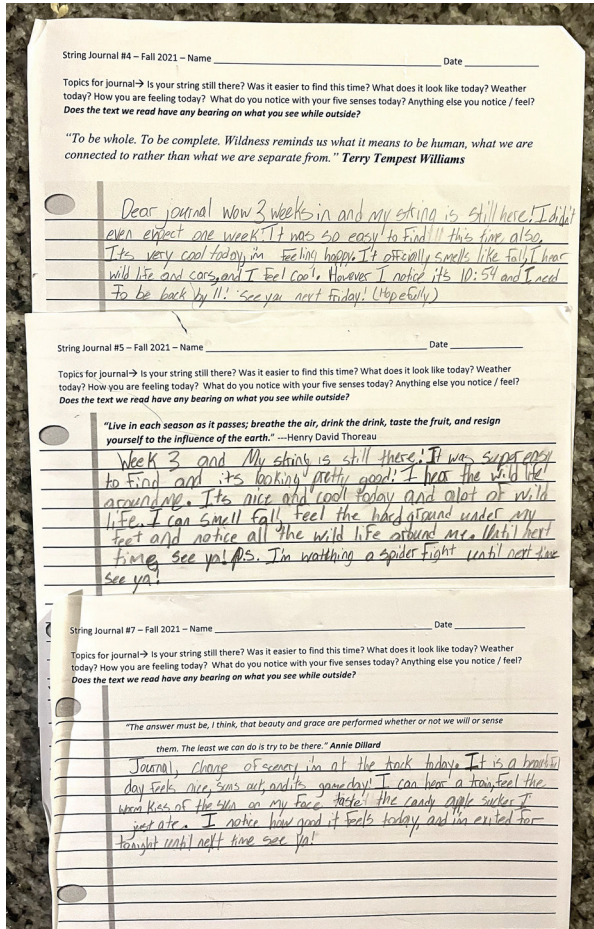 String Journal #4 – Fall 2021 – Name ______________ Date ______________
Topics for journal→ Is your string still there? Was it easier to find this time? What does it look like today? Weather
today? How you are feeling today? What do you notice with your five senses today? Anything else you notice / feel?
Does the text we read have any bearing on what you see while outside?
“To be whole. To be complete. Wildness reminds us what it means to be human, what we are
connected to rather than what we are separate from.” Terry Tempest Williams
Dear journal wow 3 weeks in and my string is still here! I didn't
even expect one week! It was so easy to find!!! this time also.
Its very cool today, im feeling happy. It officially smells like fall, I hear
wild life and cars, and I feel cool. However I notice its 10:54 and I need
to be back by 11! See you next friday! (Hopefully)
String Journal #5 – Fall 2021 – Name ______________ Date ______________
Topics for journal→ Is your string still there? Was it easier to find this time? What does it look like today? Weather
today? How you are feeling today? What do you notice with your five senses today? Anything else you notice / feel?
Does the text we read have any bearing on what you see while outside?
“Live in each season as it passes; breathe the air, drink the drink, taste the fruit, and resign
yourself to the influence of the earth.” ---Henry David Thoreau
Week 3 and My string is still there! It was super easy
to find and its looking pretty good! I hear the wild life
around me. Its nice and cool today and alot of wild
life. I can smell fall, feel the hard ground under my
feet and notice all the wild life around me. Until next
time, see ya! P.S. I'm watching a spider fight until next time
see ya!
String Journal #7 – Fall 2021 – Name ______________ Date ______________
Topics for journal→ Is your string still there? Was it easier to find this time? What does it look like today? Weather
today? How you are feeling today? What do you notice with your five senses today? Anything else you notice / feel?
Does the text we read have any bearing on what you see while outside?
“The answer must be, I think, that beauty and grace are performed whether or not we will or sense
them. The least we can do is try to be there.” Annie Dillard
Journal, change of scenery im at the track today. It is a beautiful
day feels nice, suns out, and its gameday! I can hear a train, feel the
warm kiss of the sun on my face taste the candy apple sucker I
just ate. I notice how good it feels today, and im exited for
tonight until next time see ya!